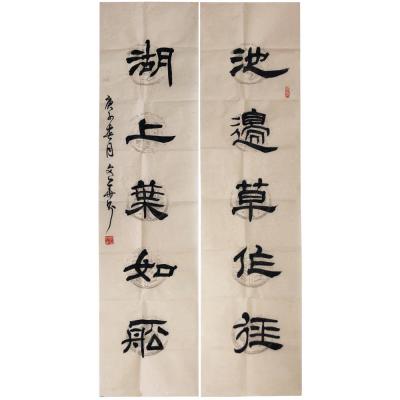 池邊草作徑
湖上葉如舩
庚子春月文華书